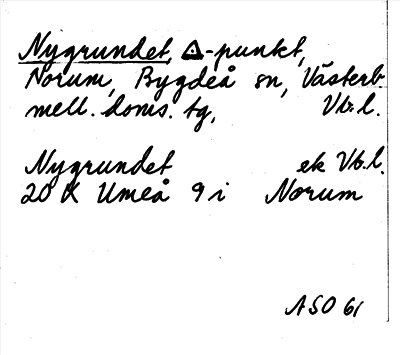 Nygrundet, △-punkt,
Norum, Bygdeå sn, Västerb.
mell. doms. tg, Vb.l.
Nygrundet ek Vb.l.
20 K Umeå 9 i Norum
ASO 61